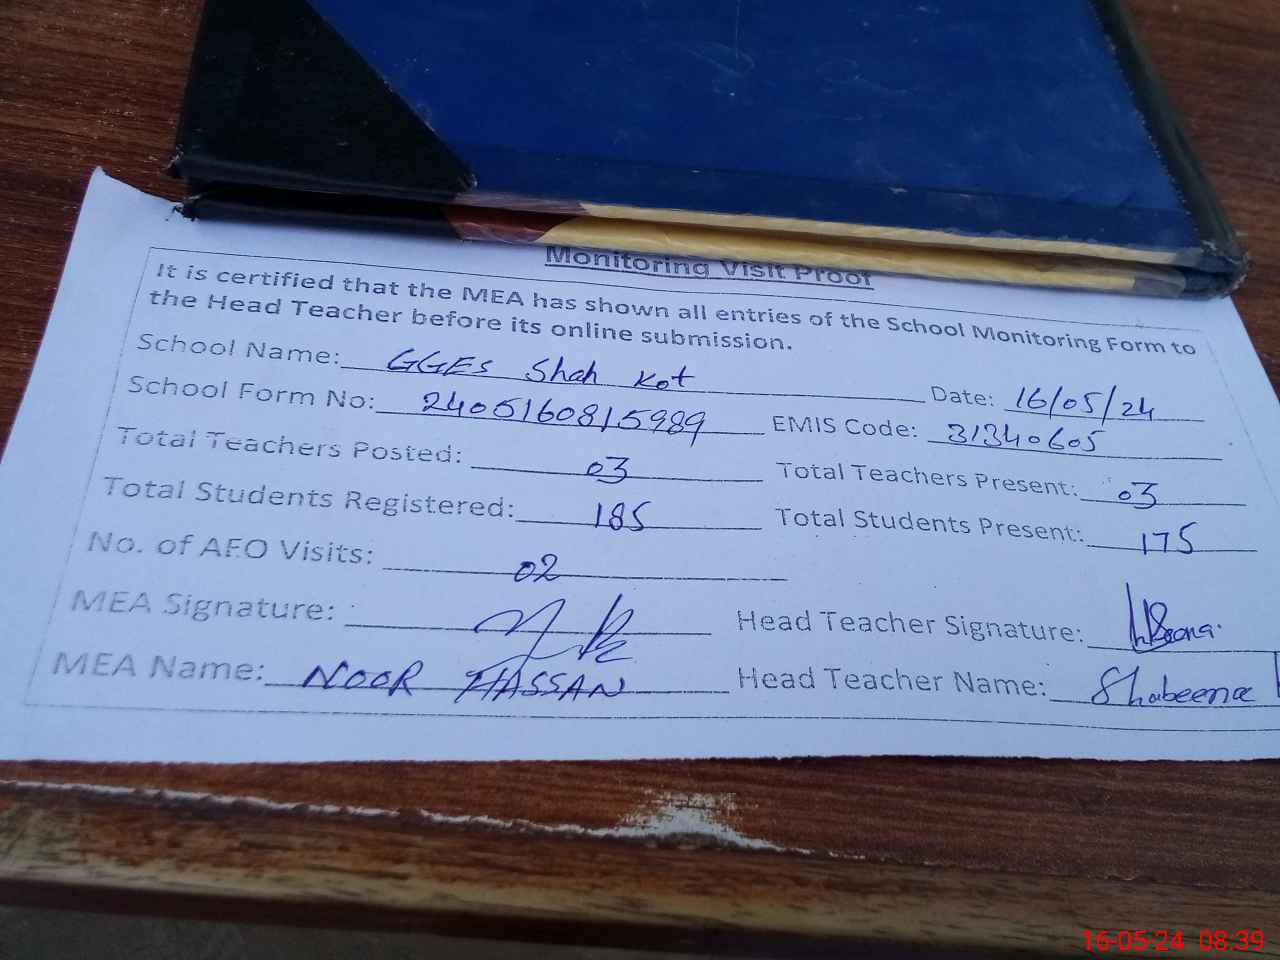 Monitoring Visit Proof
It is certified that the MEA has shown all entries of the School Monitoring Form to
the Head Teacher before its online submission.
School Name: GGES Shah Kot Date: 16/05/24
School Form No: 2405160815989 EMIS Code: 31340605
Total Teachers Posted: 03 Total Teachers Present: 03
Total Students Registered: 185 Total Students Present: 175
No. of AEO Visits: 02
MEA Signature: Head Teacher Signature:
MEA Name: NOOR HASSAN Head Teacher Name: Shabeena
16-05-24 08:39